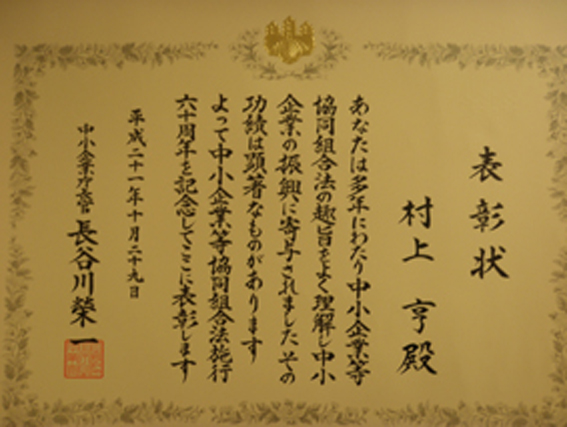 表彰状
村上 亨殿
あなたは多年にわたり中小企業等
協同組合法の趣旨をよく理解し中小
企業の振興に寄与されました その
功績は顕著なものがあります
よって中小企業等協同組合法施行
六十周年を記念してここに表彰します
平成二十一年十月二十九日
中小企業庁長官 長谷川榮一